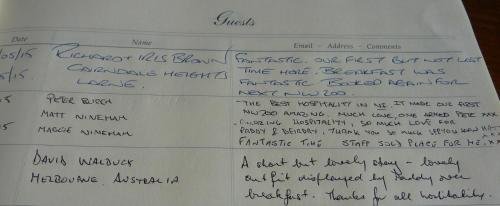 Guests
Date Name Email - Address - Comments
/05/15 RICHARD + IRIS BROWN FANTASTIC. OUR FIRST BUT NOT LAST
5/15 CAIRNDALE HEIGHTS TIME HERE. BREAKFAST WAS
LARNE. FANTASTIC. BOOKED AGAIN FOR
NEXT NW200.
15 PETER BURCH - THE BEST HOSPITALITY IN NI. IT MADE OUR FIRST
MATT NINEHAM NW200 AMAZING. MUCH LOVE, ONE ARMED PETE xxx
15 MAGGIE NINEHAM AMAZING HOSPITALITY, SO MUCH LOVE FOR
PADDY & DEIRDRY, THANK YOU SO MUCH SEE YOU NEXT
FANTASTIC TIME STAFF SOLD PLACE FOR ME. XX
DAVID WALDUCK A short but lovely stay - lovely
MELBOURNE. AUSTRALIA outfit displayed by Paddy over
breakfast. Thanks for all hospitality.